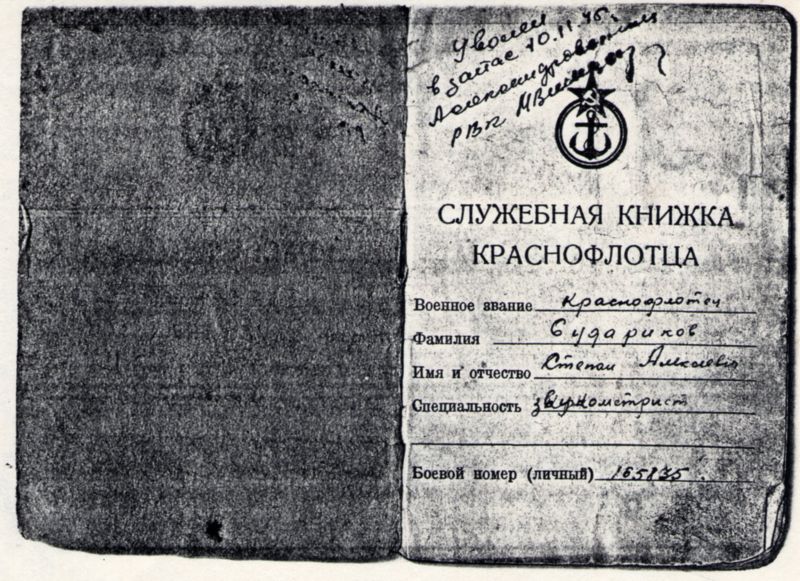 Уволен
в запас 10.11.46 г.
Александровским
РВК
СЛУЖЕБНАЯ КНИЖКА
КРАСНОФЛОТЦА
Военное звание краснофлотец
Фамилия Судариков
Имя и отчество Степан
Специальность звукометрист
Боевой номер (личный) 165835